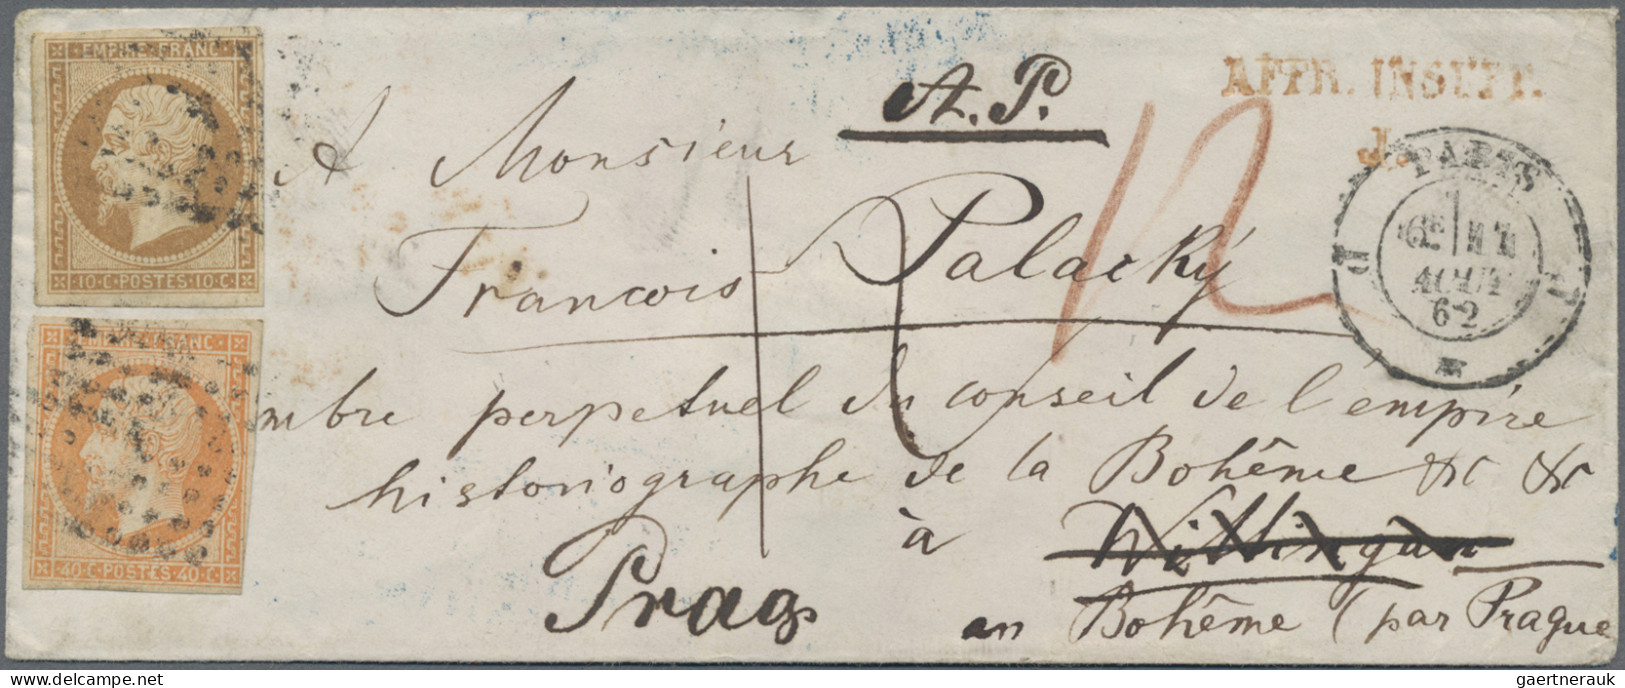 EMPIRE FRANC
10·C·POSTES·10·C
EMPIRE FRANC
40·C·POSTES·40·C
A. P.
AFFR. INSUFF.
PARIS
6E 11
AOUT
62
12
A Monsieur
Francois Palacký
mbre perpetuel du conseil de l'empire
historiographe de la Bohême &c &c
à Wittingau
Prag
en Bohême (par Prague
delcampe.net
gaertnerauk